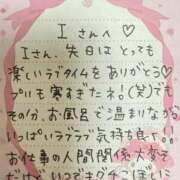 Iさんへ♡
Iさん、先日はとっても
楽しいラブタイムをありがとう♡
プリも寒すぎたネ!(笑)でも
その分、お風呂で温まりながら
いっぱいラブラブ気持ち良し!!
お仕事の人間関係大変そ
だけど、いつでもグチこぼしに